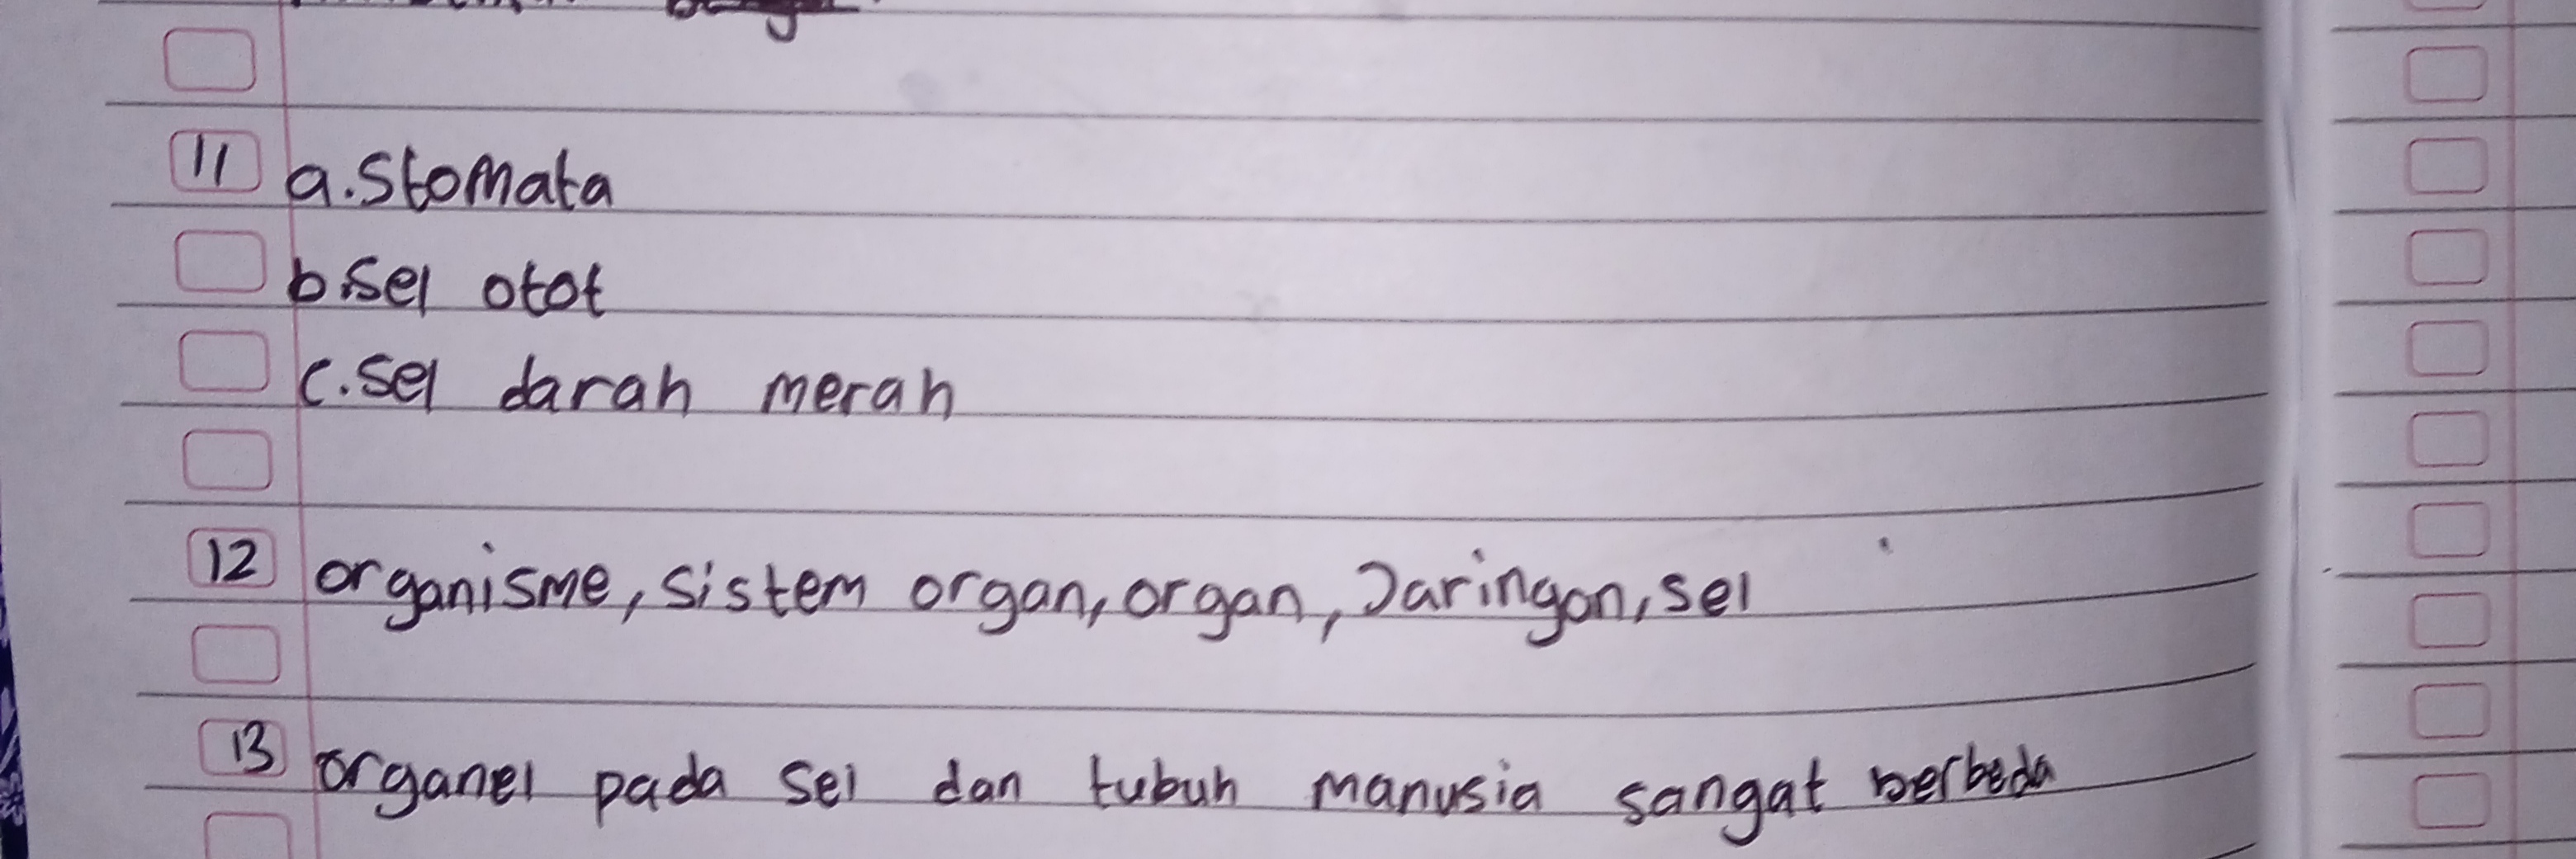 11 a. Stomata
b. sel otot
c. sel darah merah
12 organisme, sistem organ, organ, Jaringan, sel
13 organel pada sel dan tubuh manusia sangat berbeda